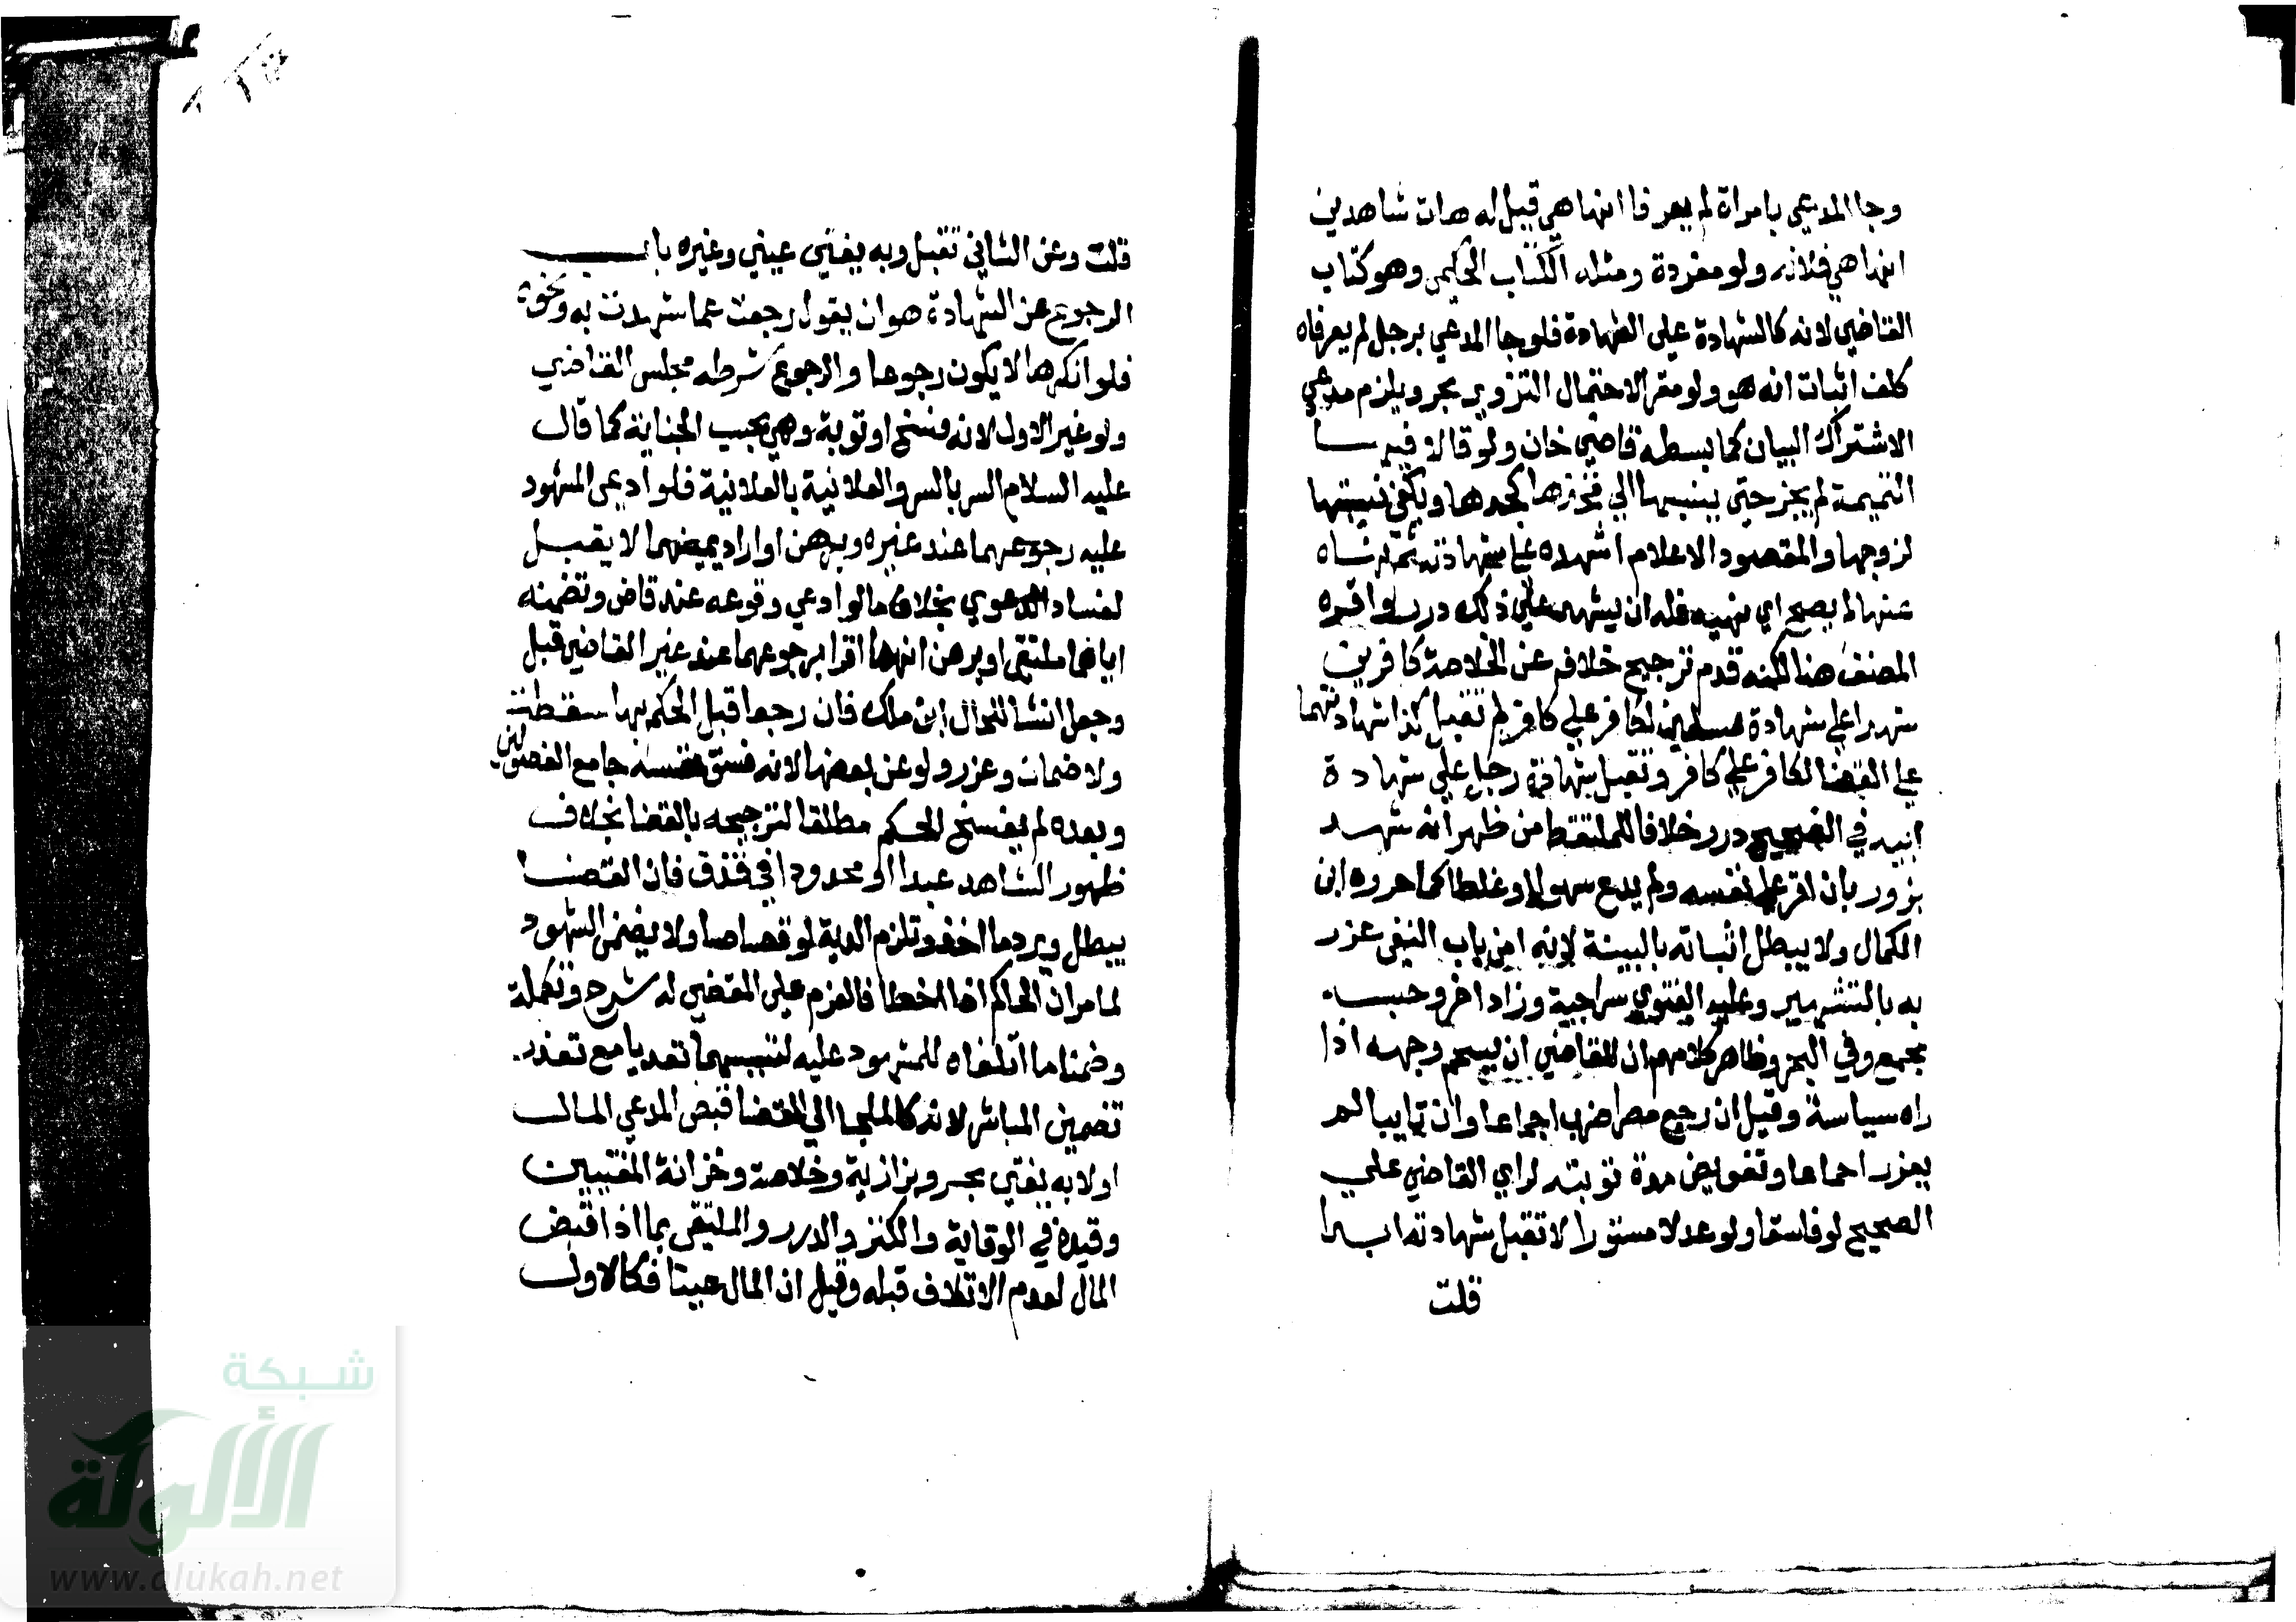 وجا المدعي بامراة لم يعرفا انها هي قيل له هات شاهدين
انها هي فلانه ولو مفردة ومثله الكتاب الحكمي وهو كتاب
القاضي لانه كالشهادة علي الشهادة فلو جا المدعي برجل لم يعرفاه
كلف اثبات انه هو ولو مقرا لاحتمال التزوير بحر ويلزم مدعي
الاشتراك البيان كما بسطه قاضي خان ولو قالا فيهــا
التميمية لم يجز حتي ينسبها الي فخذها كجدها ويكفي نسبتها
لزوجها والمقصود الاعلام اشهده علي شهادته ثم نهاه
عنها لم يصح اي نهيه فله ان يشهد علي ذلك درر واقره
المصنف هنا لكنه قدم ترجيح خلافه عن الخلاصة كافرين
شهدا علي شهادة مسلمين لكافر علي كافر لم تقبل كذا شهادتهما
علي القضا لكافر علي كافر وتقبل شهادة رجل علي شهادة
ابيه في الصحيح درر خلافا للملتقط من ظهر انه شهــد
بزور بان اقر علي نفسه ولم يدع سهوا او غلطا كما حرره ابن
الكمال ولا يبطل اثباته بالبينة لانه من باب النفي عزر
به بالتشهير وعليه الفتوي سراجية وزاد اضربه وحبسه
مجمع وفي البحر وظاهر كلامهم ان للقاضي ان يسحم وجهه اذا
راه سياسة وقيل ان رجع مصرا ضرب اجماعا وان تايبا لم
يعزر اجماعا وتفويض مدة توبته لراي القاضي علي
الصحيح لو فاسقا ولو عدلا مستورا لا تقبل شهادته ابــدا
قلت
قلت وعن الثاني تقبل وبه يفتي عيني وغيره بابـــ
الرجوع عن الشهادة هو ان يقول رجعت عما شهدت به ونحوه
فلو انكرها لا يكون رجوعا والرجوع شرطه مجلس القاضي
ولو غير الاول لانه فسخ او توبة وهي بحسب الجناية كما قال
عليه السلام السر بالسر والعلانية بالعلانية فلو ادعي المشهود
عليه رجوعهما عند غيره وبرهن او اراد يمينهما لا يقبــل
لفساد الدعوي بخلاف ما لو ادعي وقوعه عند قاض وتضمينه
اياهما ملتقي او برهن انهما اقرا برجوعهما عند غير القاضي قبل
وجعل انشا للحال ابن ملك فان رجعا قبل الحكم بها سقطت
ولا ضمان وعزر ولو عن بعضها لانه فسق نفسه جامع الفصولين
وبعده لم يفسخ الحكم مطلقا لترجيحه بالقضا بخلاف
ظهور الشاهد عبدا او محدودا في قذف فان القضــا
يبطل ويرد ما اخذ وتلزم الدية لو قصاصا ولا يضمن الشهود
لما مر ان الحاكم اذا اخطا فالغرم علي المقضي له شرح وتكملة
وضمنا ما اتلفاه للمشهود عليه لتسببهما تعديا مع تعذر
تضمين المباشر لانه كالملجا الي القضا قبض المدعي المال
اولا به يفتي بحر وبزازية وخلاصة وخزانة المفتيين
وقيده في الوقاية والكنز والدرر والملتقي بما اذا قبض
المال لعدم الاتلاف قبله وقيل ان المال عينا فكالاول
شبكة
الألوكة
www.alukah.net